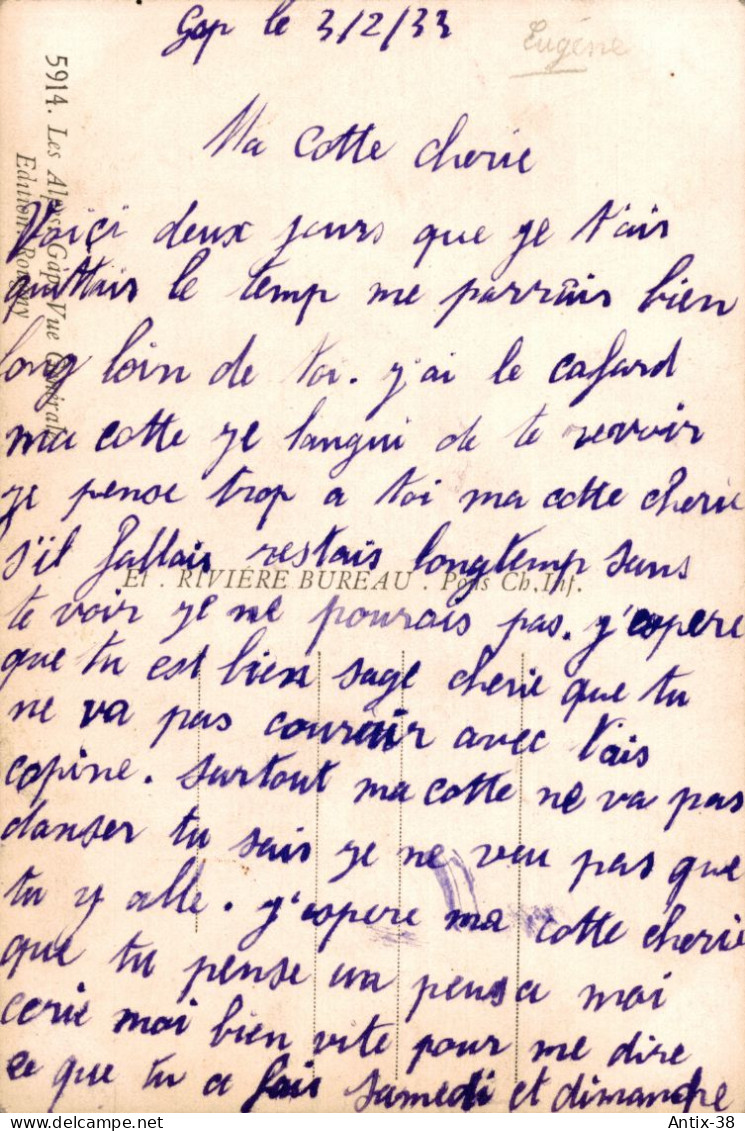 Gap le 3/2/33
Eugéne
Ma cotte cherie
Voiçi deux jours que je t'ais
quittais le temp me parrais bien
long loin de toi. j'ai le cafard
ma cotte je langui de te revoir
je pense trop a toi ma cotte cherie
s'il fallais restais longtemp sans
te voir je ne pourais pas. j'espere
que tu est bien sage cherie que tu
ne va pas courair avec t'ais
copine. surtout ma cotte ne va pas
danser tu sais je ne veu pas que
tu y alle. j'espere ma cotte cherie
que tu pense un pensa moi
ecrie moi bien vite pour me dire
ce que tu a fais samedi et dimandre
5914. Les Alpes. Gap. Vue Générale
Edition.
Et. RIVIÈRE BUREAU. Ponts Ch. Inf.
Antix-38